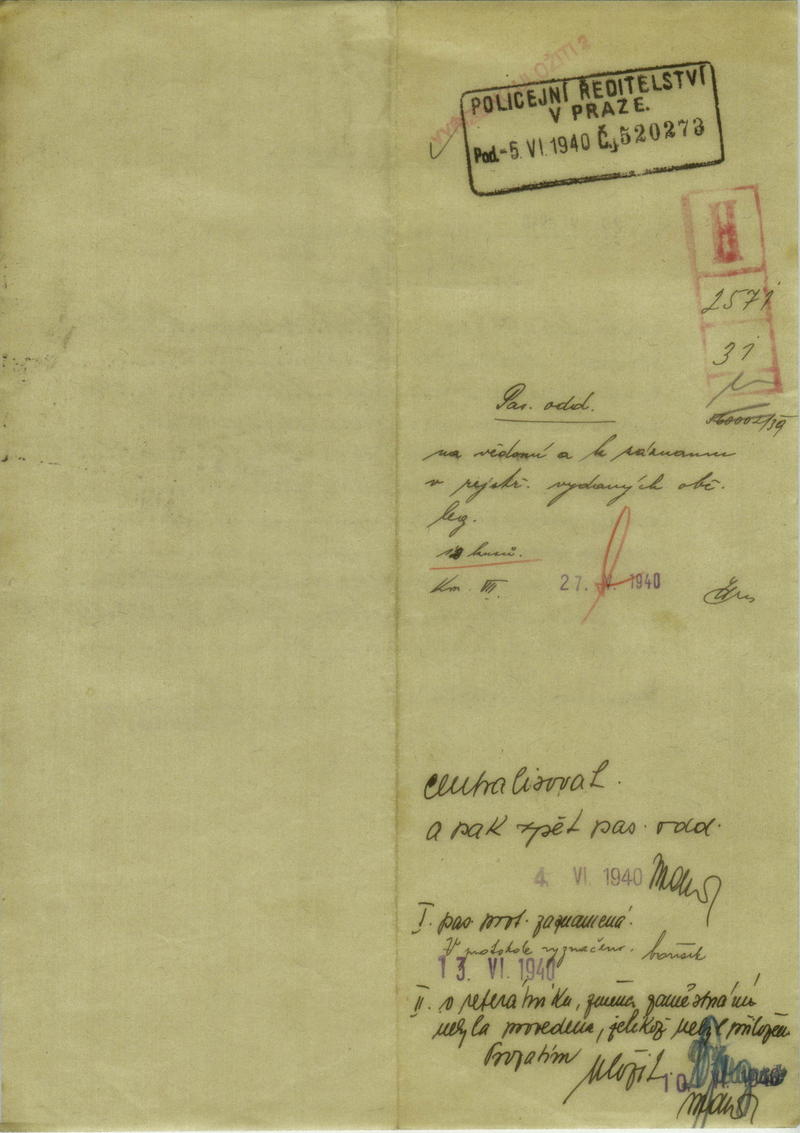 ULOŽITI 2
POLICEJNÍ ŘEDITELSTVÍ
V PRAZE.
Pod. -5. VI. 1940 Čj 520273
H
2571
31
Pas. odd.
na vědomí a k záznamu
v rejstř. vydaných obč.
leg.
kusů.
Km. VII. 27. 1940
centralisovat.
a pak zpět pas. odd.
4. VI. 1940
I. pas. prot. zaznamená.
V protokole vyznačeno.
13. VI. 1940
II. o referátníku, změna zaměstnání
nebyla provedena, jelikož nebyl přiložen
Prozatím
Uložit.